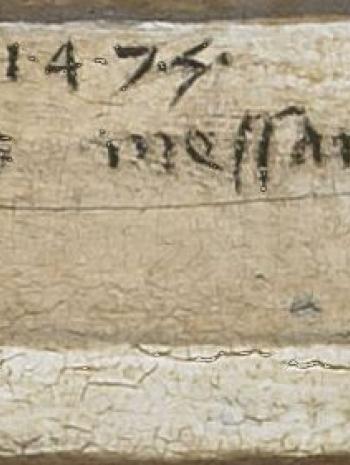 1·4·7·5·
messan